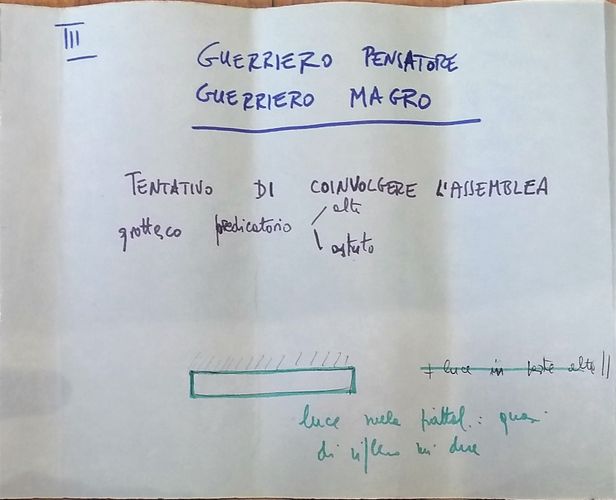 III
GUERRIERO PENSATORE
GUERRIERO MAGRO
TENTATIVO DI COINVOLGERE L'ASSEMBLEA
grottesco predicatorio
alto
astuto
+ luce in parte alta
luce nella piattaf.: quasi
di riflesso sui due